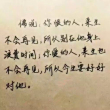 佛说,你爱的人,来生
不会再见,所以别在他身上
浪费时间;你爱的人,来生也
不会再见,所以今生要好好
对他。